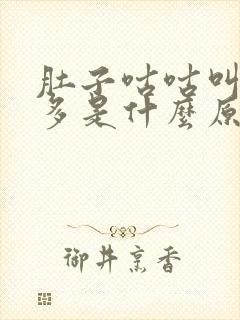 肚子咕咕叫
多是什麼原
御井烹香